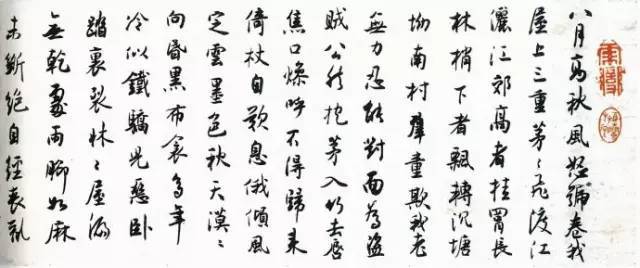 八月高秋風怒號卷我
屋上三重茅〻飛渡江
灑江郊高者挂罥長
林梢下者飄轉沉塘
坳南村羣童欺我老
無力忍能對面為盜
賊公然抱茅入竹去唇
焦口燥呼不得歸來
倚杖自歎息俄傾風
定雲墨色秋天漠〻
向昏黑布衾多年
冷似鐵驕兒惡卧
踏裏裂牀〻屋漏
無乾處雨腳如麻
未斷絕自經喪亂